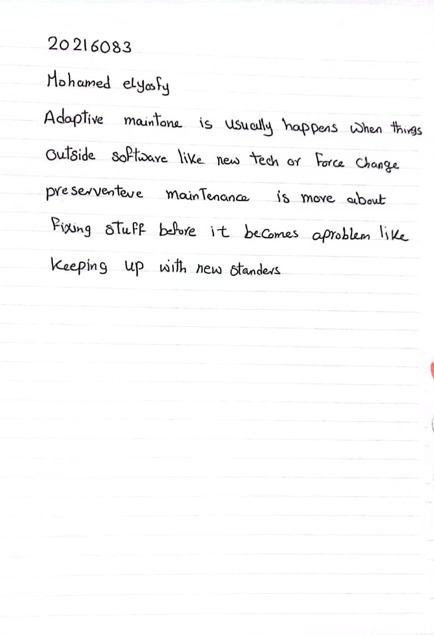 20216083
Mohamed elyosfy
Adaptive maintone is usually happens when things
outside software like new tech or Force change
preserventeve mainTenance is move about
Fixing stuff before it becomes aproblem like
Keeping up with new standers